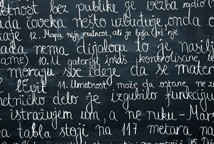 umetnost bez publike je vežba radio
da čoveka nešto uzbuđuje, onda
12. Mapa nije realnost, ali je bolja nego
kada nema dijaloga to je nasil
10. U galeriji imaš kontrolisane,
moraju sve ideje da se mate
11. Umetnost može da ostane, ne
delo je izgubilo funkciju
istražujem um, a ne ruku - Mar
tabla stoji na 117 metara na